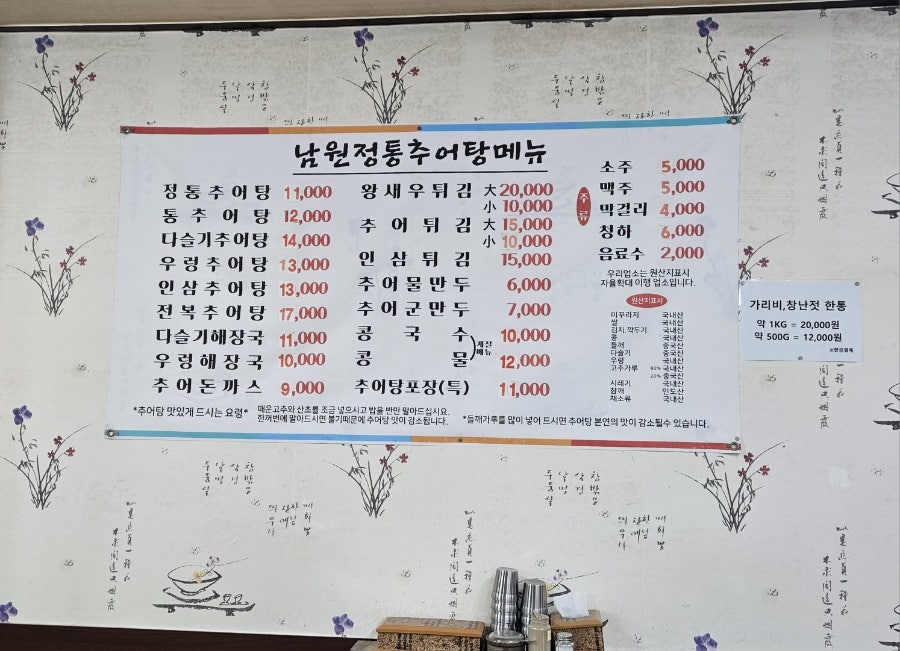 남원정통추어탕메뉴
정통추어탕 11,000
통추어탕 12,000
다슬기추어탕 14,000
우렁추어탕 13,000
인삼추어탕 13,000
전복추어탕 17,000
다슬기해장국 11,000
우렁해장국 10,000
추어돈까스 9,000
왕새우튀김 大 20,000
小 10,000
추어튀김 大 15,000
小 10,000
인삼튀김 15,000
추어물만두 6,000
추어군만두 7,000
콩국수 10,000
콩물 12,000
계절메뉴
추어탕포장(특) 11,000
주류
소주 5,000
맥주 5,000
막걸리 4,000
청하 6,000
음료수 2,000
우리업소는 원산지표시
자율확대 이행 업소입니다.
원산지표시
미꾸라지 국내산
쌀 국내산
김치,깍두기 국내산
콩 국내산
들깨 중국산
다슬기 중국산
우렁 국내산
고추가루 80% 국내산
20% 중국산
시레기 국내산
참깨 인도산
채소류 국내산
*추어탕 맛있게 드시는 요령*
매운고추와 산초를 조금 넣으시고 밥을 반만 말아드십시요.
한꺼번에 말아드시면 불기때문에 추어탕 맛이 감소됩니다.
*들깨가루를 많이 넣어 드시면 추어탕 본연의 맛이 감소될수 있습니다.
가리비,창난젓 한통
약 1KG = 20,000원
약 500G = 12,000원
※현금결제